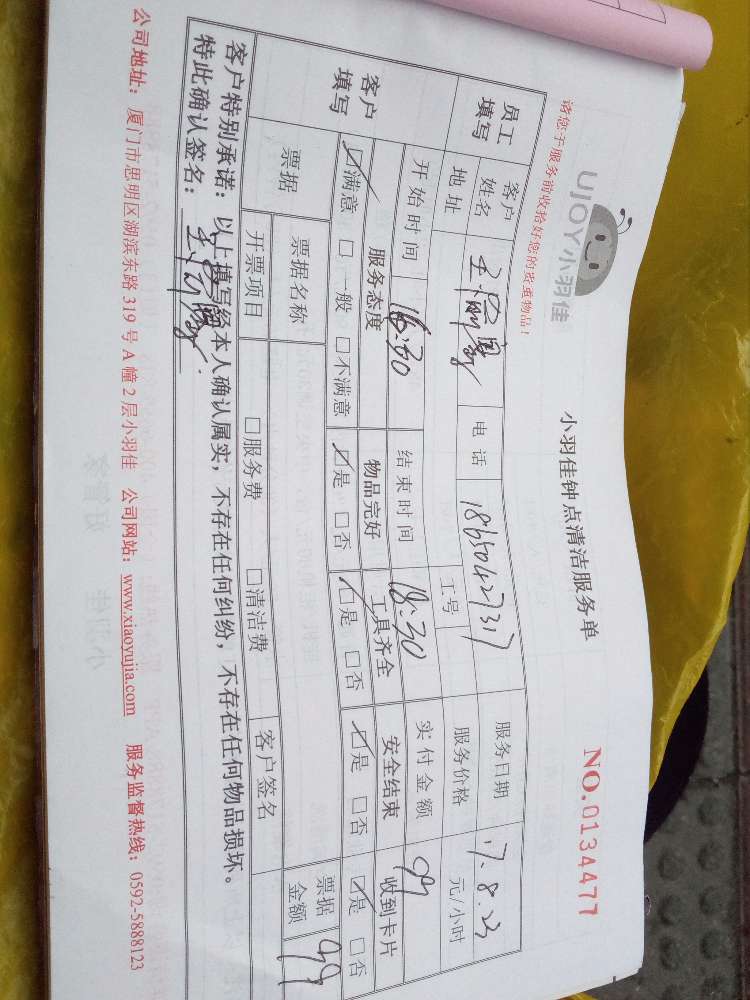 UJOY小羽佳
小羽佳钟点清洁服务单
请您于服务前收拾好您的贵重物品！
NO.0134477
员工填写 客户姓名 电话 18650427317 服务日期 17.8.23
地址 工号 服务价格 元/小时
开始时间 16:30 结束时间 18:30 实付金额 99
客户填写 服务态度 物品完好 工具齐全 安全结束 收到卡片
☑满意 □一般 □不满意 ☑是 □否 ☑是 □否 ☑是 □否 ☑是 □否
票据 票据名称 票据金额 99
开票项目 □服务费 □清洁费 客户签名
客户特别承诺：以上填写经本人确认属实，不存在任何纠纷，不存在任何物品损坏。
特此确认签名：
公司地址：厦门市思明区湖滨东路319号A幢2层小羽佳 公司网站：www.xiaoyujia.com 服务监督热线：0592-5888123